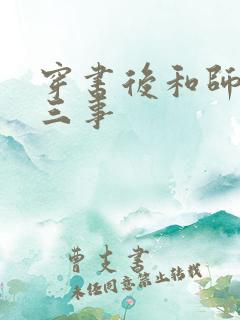 穿書後和師
三事
曹支書
未经同意禁止转载